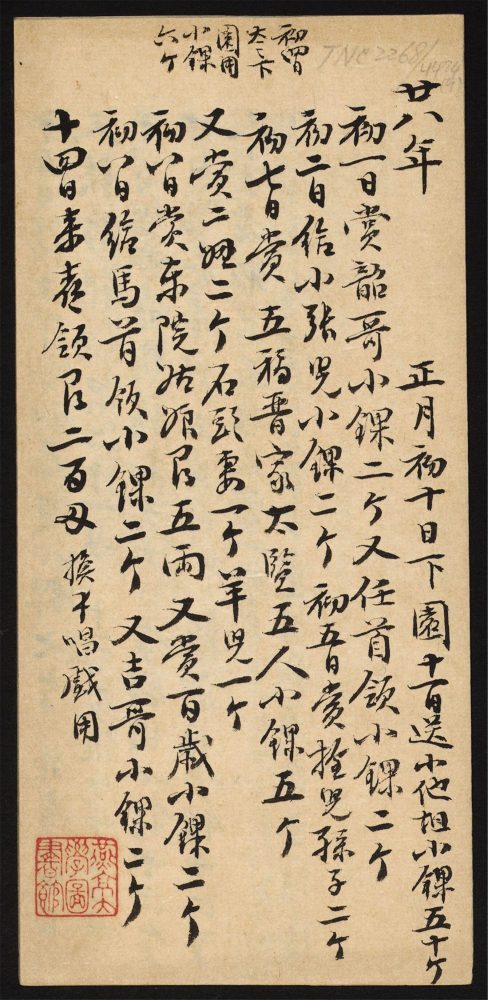 初四日
園用
小錁
六个
TNC 2268
廿八年 正月初十日下園十一日送小他坦小錁五十个
初一日賞韶哥小錁二个又任首領小錁二个
初二日給小張児小錁二个 初五日賞拴児孫子二个
初七日賞 五福晋家太監五人小錁五个
又賞二妞二个石頭妻一个羊児一个
初八日賞东院姑娘艮五兩又賞百歲小錁二个
初八日給馬首領小錁二个 又吉哥小錁二个
十四日來喜領艮二百 換 唱戲用
燕京大
學圖
書館